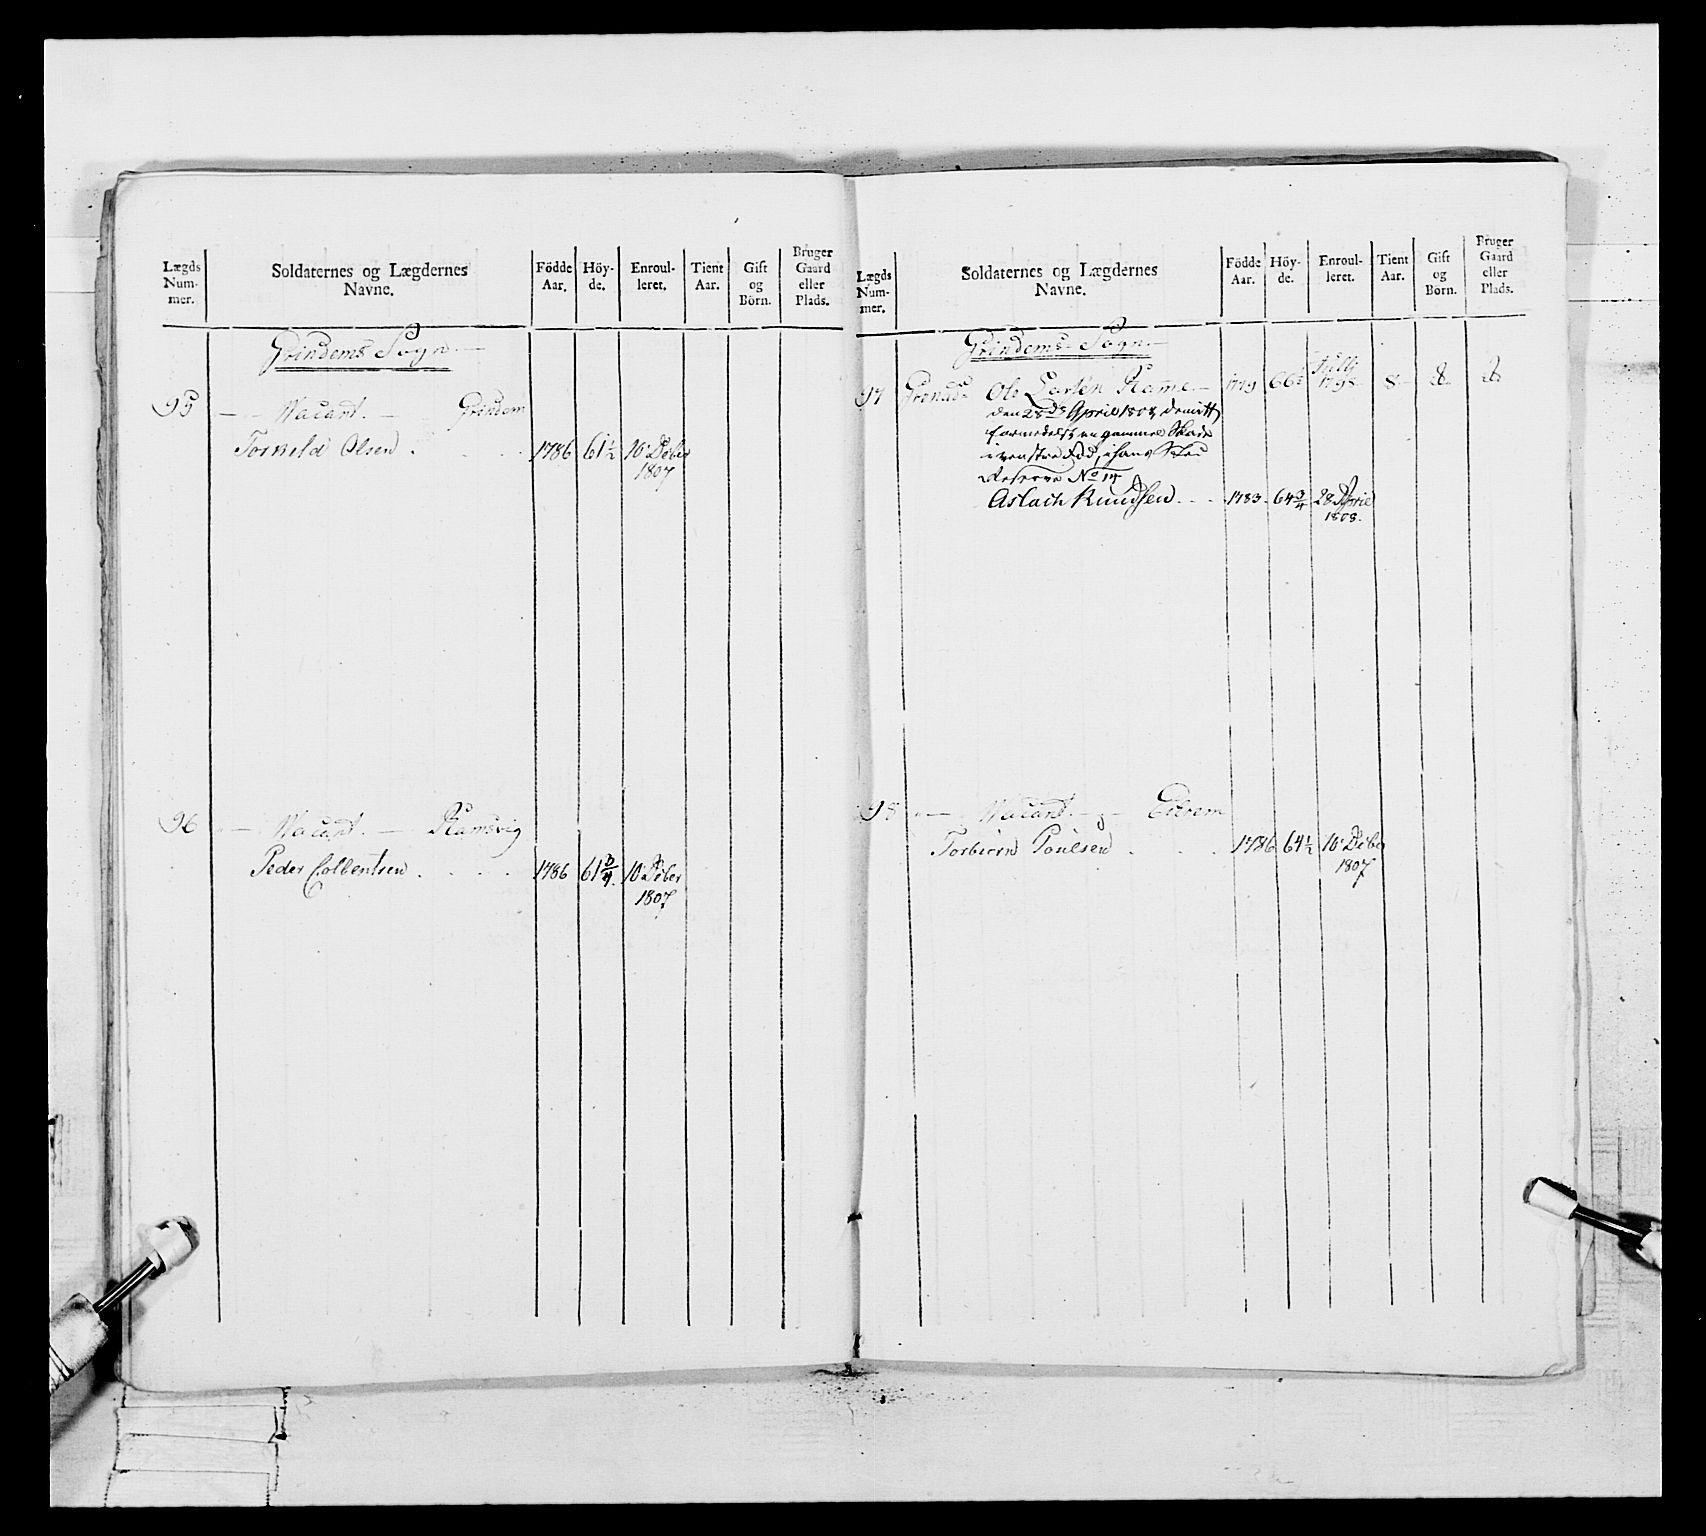 Lægds Num- mer. Soldaternes og Lægdernes Navne. Födde Aar. Höy- de. Enroul- leret. Tient Aar. Gift og Börn. Bruger Gaard eller Plads.
Grindems Sogn.
95 — Vacant. — Grindem
Torkild Olsen . . . 1786 61 1/2 10 Dcbr
1807
96 — Vacant. — Ramsvig
Peder Colbentsen . . . . 1786 61 3/4 10 Dcbr
1807
Lægds Num- mer. Soldaternes og Lægdernes Navne. Födde Aar. Höy- de. Enroul- leret. Tient Aar. Gift og Börn. Bruger Gaard eller Plads.
Grindems Sogn.
97 Ole Rame — 66 1798 8
den 28de April 1808 demitt
formedelst en gammel Skade
i venstre Fod, i hans Sted
Reserve No 14
Aslach Knudsen . . . 1783 64 3/4 28 April
1808.
98 — Vacant. — Eitrem
Torbiørn Poulsen . . . 1786 64 1/2 10 Dcbr
1807